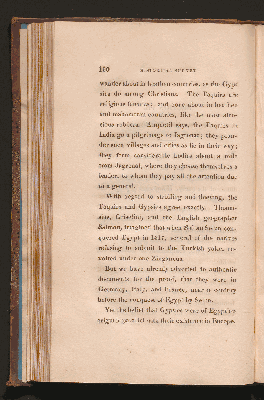 100 HISTORICAL SURVEY
wander about in heathen countries, as the Gyp-
sies do among Christians. The Faquirs are
religious
and mahometan countries, like the most atro-
cious robbers. says, the Faquirs in
India go a pilgrimage to Jagrenat; they plun-
der such villages and cities as lie in their way;
they form considerable bodies about a mile
from Jagrenat, where they choose themselves a
leader, to whom they pay all the attention due
to a general.
With regard to stealing and thieving, the
Faquirs and Gypsies agree exactly.
sius, Griselini, and the English geographer
Salmon, imagined that when Sultan Selim con-
quered Egypt in 1517, several of the natives
refusing to submit to the Turkish yoke, re-
volted under one Zinganeus.
But we have already adverted to authentic
documents for the proof, that they were in
Germany, Italy, and France, near a century
before the conquest of Egypt by Selim.
Yet the belief that Gypsies were of Egyptian
origin, their existence in Europe.